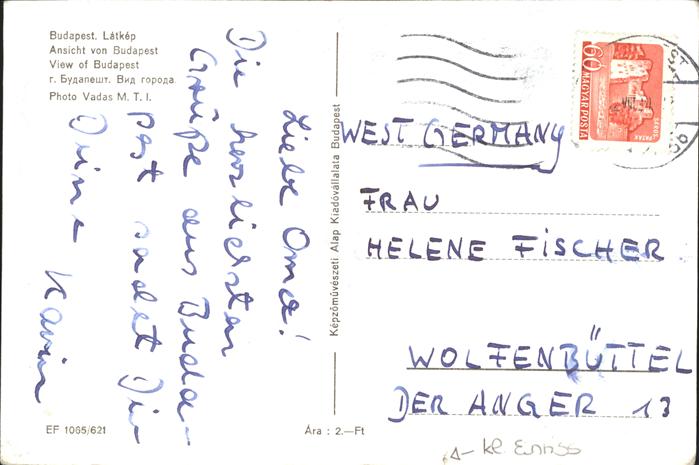 Budapest. Látkép
Ansicht von Budapest
View of Budapest
г. Будапешт. Вид города
Photo Vadas M. T. I.
Liebe Oma!
Die herzlichsten
Grüße aus Buda-
pest sendet Dir
Deine Karin
EF 1065/621
Ára : 2.—Ft
Képzőművészeti Alap Kiadóvállalata Budapest
60
MAGYAR POSTA
WEST GERMANY
FRAU
HELENE FISCHER
WOLFENBÜTTEL
DER ANGER 13